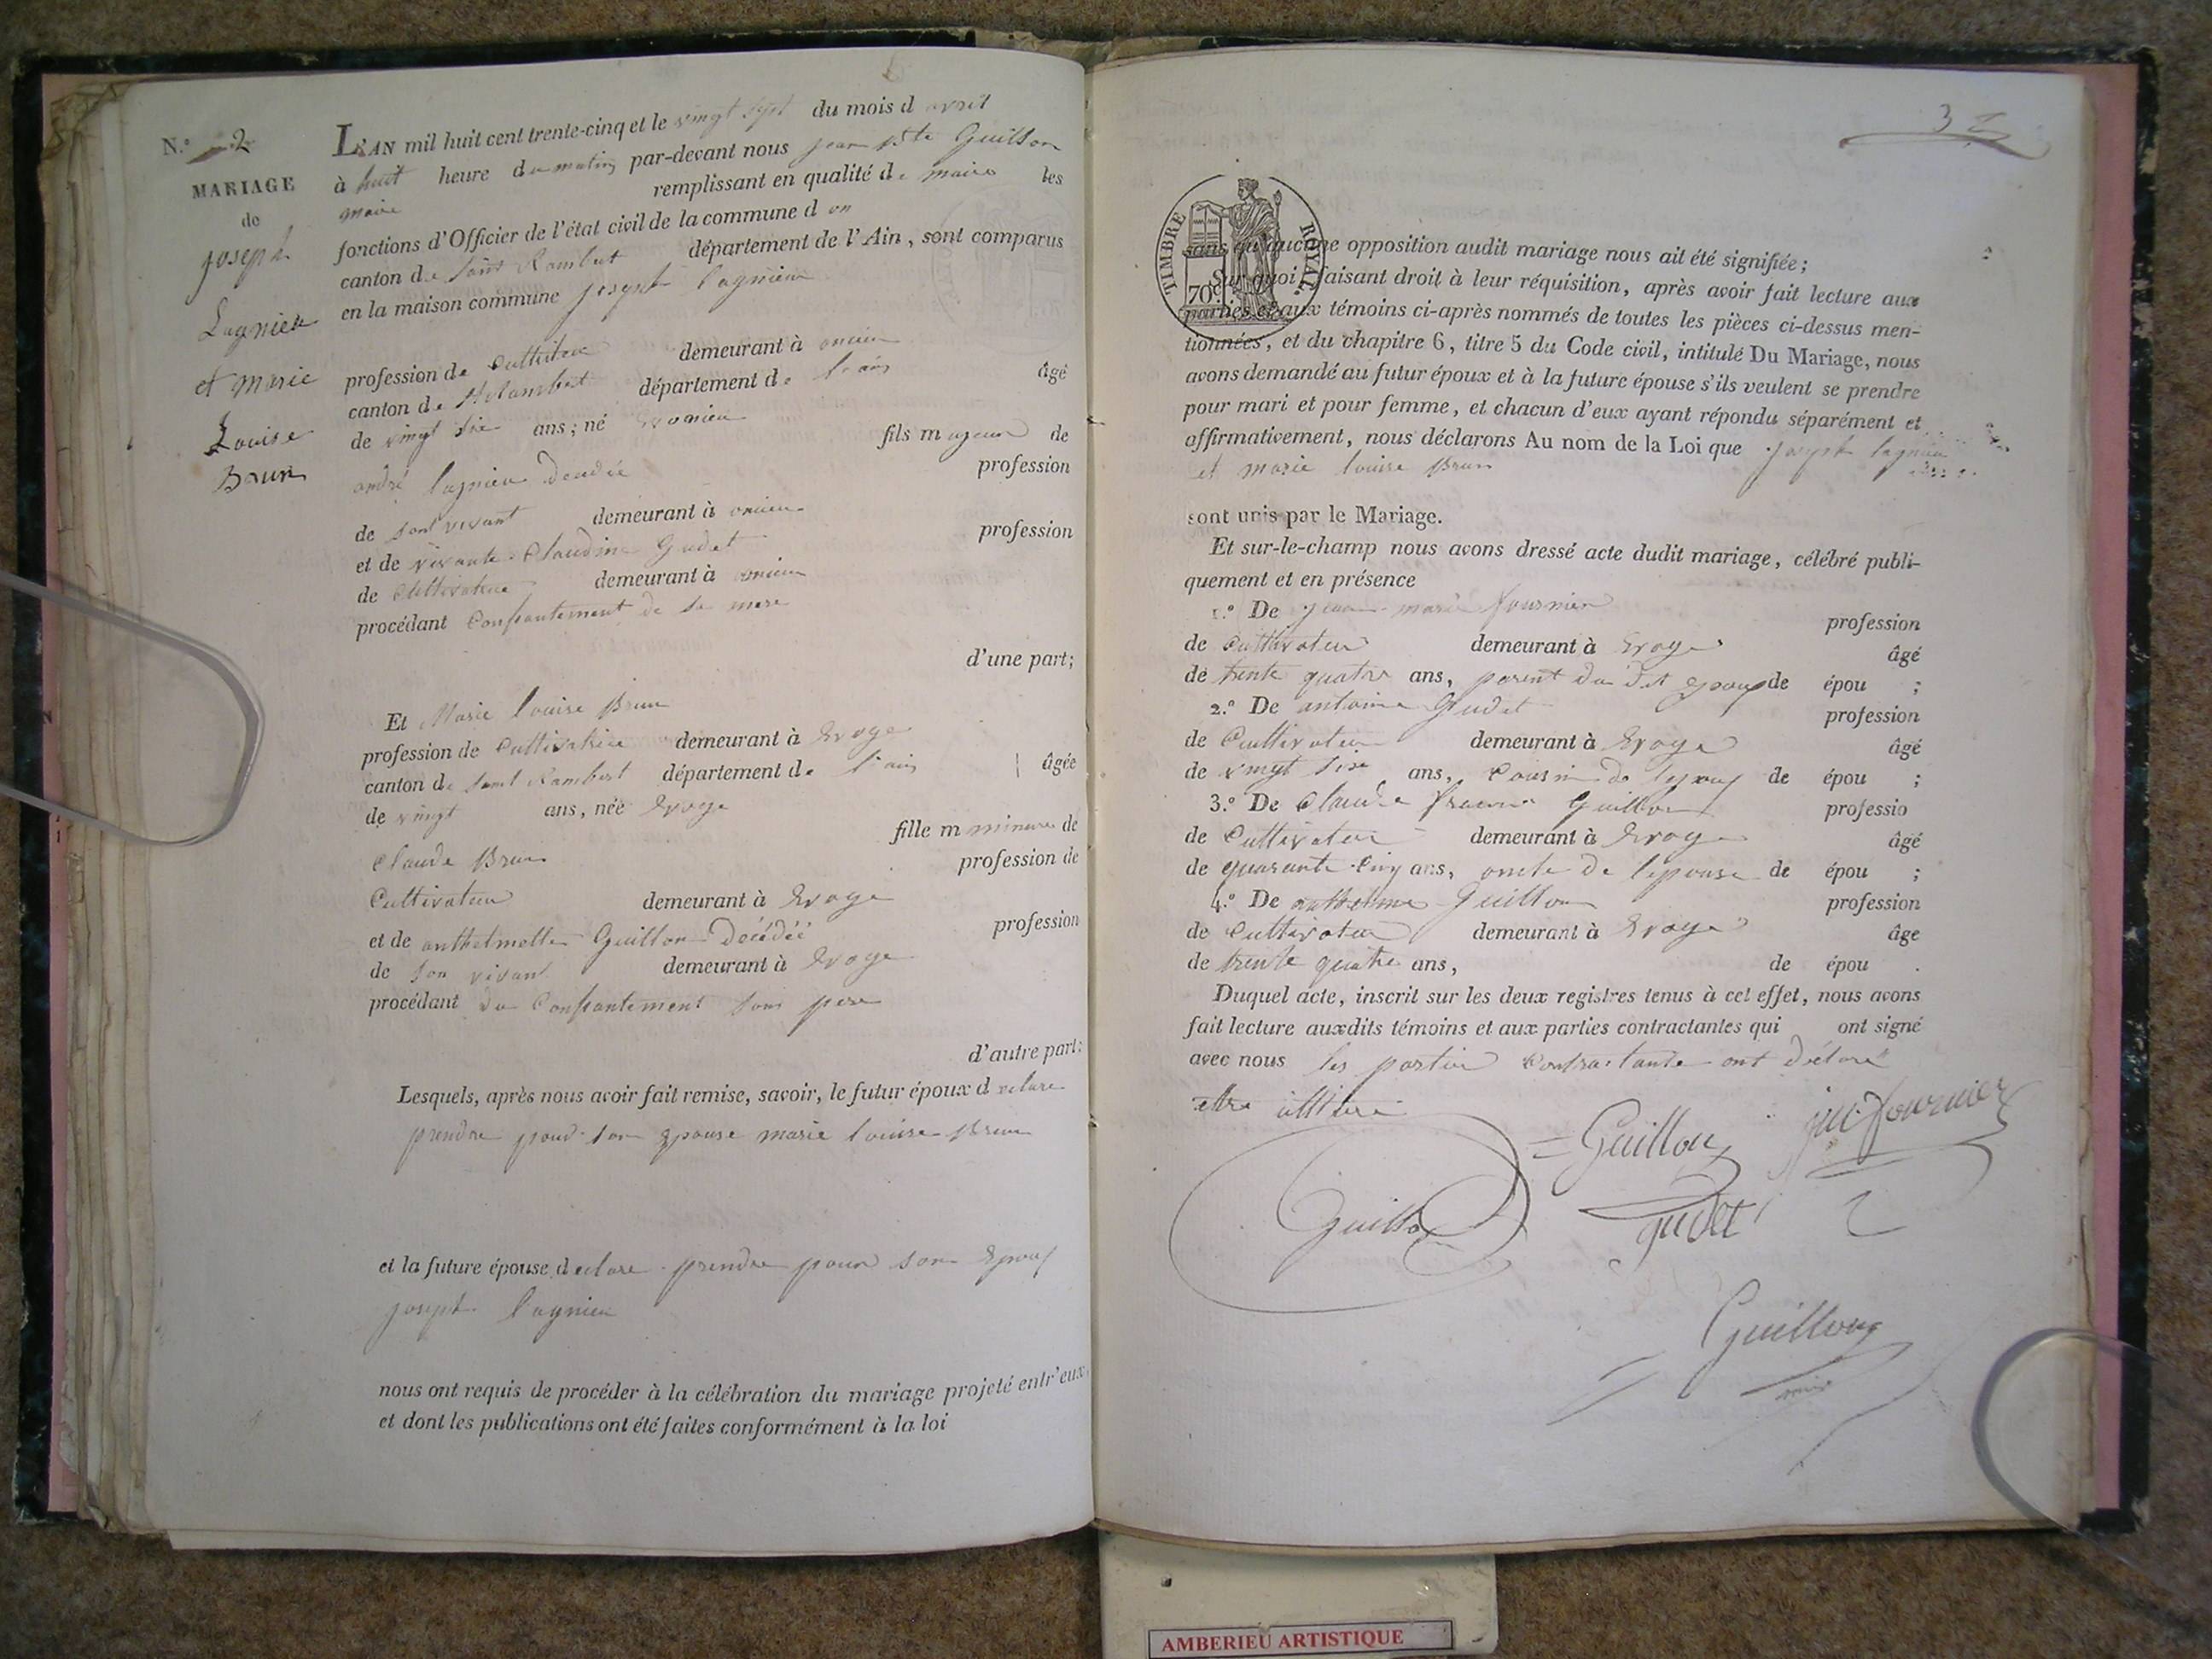 N.º 2
MARIAGE
de
joseph
Lagnieu
et marie
Louise
Brun
L'AN mil huit cent trente-cinq et le vingt sept du mois d avril
à huit heure du matin par-devant nous jean Bte Guillon
maire remplissant en qualité de maire les
fonctions d'Officier de l'état civil de la commune d
canton de saint Rambert département de l'Ain, sont comparus
en la maison commune joseph lagnieu
profession de Cultivateur demeurant à oncieu
canton de St Rambert département de l'ain âgé
de vingt six ans; né fils majeur de
andré lagnieu profession
de son vivant demeurant à oncieu
et de vivante Claudine Gudet profession
de Cultivatrice demeurant à oncieu
procédant Consantement de sa mere
d'une part;
Et Marie louise Brun
profession de Cultivatrice demeurant à Evoge
canton de saint Rambert département de l'ain âgée
de vingt ans, née Evoge
fille m mineure de
Claude Brun profession de
Cultivateur demeurant à Evoge
et de anthelmette Guillon décédéé profession
de son vivant demeurant à Evoge
procédant du Consantement son pere
d'autre part:
Lesquels, après nous avoir fait remise, savoir, le futur époux declare
prendre pour son Epouse marie louise Brun
et la future épouse declare prendre pour son Epoux
joseph lagnieu
nous ont requis de procéder à la célébration du mariage projeté entr'eux,
et dont les publications ont été faites conformément à la loi
3
TIMBRE ROYAL.
70c
sans qu'aucune opposition audit mariage nous ait été signifiée;
Sur quoi, faisant droit à leur réquisition, après avoir fait lecture aux
parties et aux témoins ci-après nommés de toutes les pièces ci-dessus men-
tionnées, et du chapitre 6, titre 5 du Code civil, intitulé Du Mariage, nous
avons demandé au futur époux et à la future épouse s'ils veulent se prendre
pour mari et pour femme, et chacun d'eux ayant répondu séparément et
affirmativement, nous déclarons Au nom de la Loi que joseph lagnieu
et marie louise Brun
sont unis par le Mariage.
Et sur-le-champ nous avons dressé acte dudit mariage, célébré publi-
quement et en présence
1.º De jean marie fournier profession
de Cultivateur demeurant à Evoge âgé
de trente quatre ans, parent du dit Epoux de épou ;
2.º De antoine Gudet profession
de Cultivateur demeurant à Evoge âgé
de vingt six ans, Cousin de lepoux de épou ;
3.º De Claude Guillon professio
de Cultivateur demeurant à Evoge âgé
de quarante cinq ans, oncle de lepouse de épou ;
4.º De anthelme Guillon profession
de Cultivateur demeurant à Evoge âge
de trente quatre ans, de épou .
Duquel acte, inscrit sur les deux registres tenus à cet effet, nous avons
fait lecture auxdits témoins et aux parties contractantes qui ont signé
avec nous les partie Contractante ont déclaré
etre
Guillon jm fournier
Guillon gudet
Guillon
AMBERIEU ARTISTIQUE